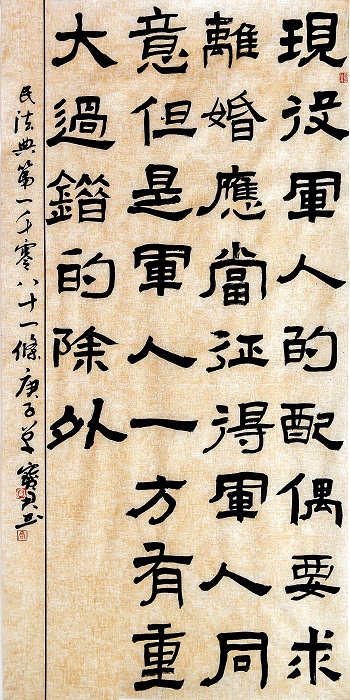 現役軍人的配偶要求
離婚應當征得軍人同
意但是軍人一方有重
大過錯的除外
民法典第一千零八十一條庚子